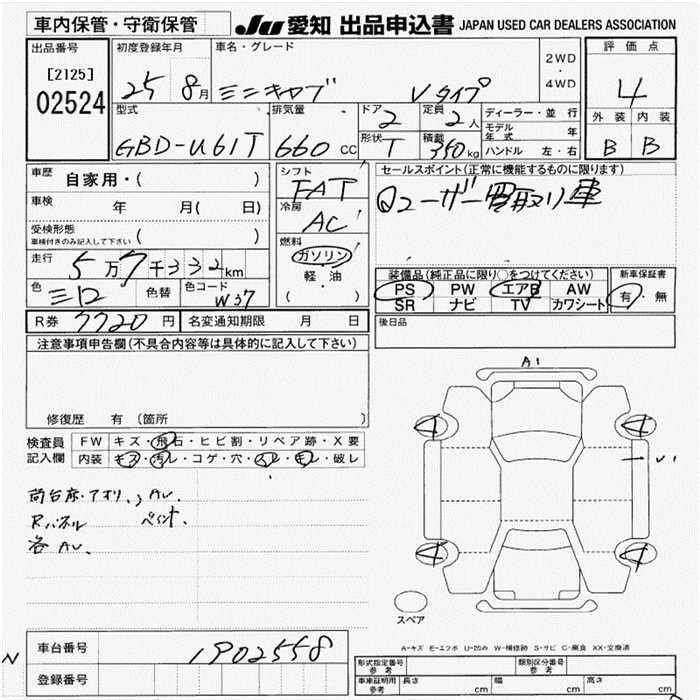 車内保管・守衛保管
JU 愛知 出品申込書 JAPAN USED CAR DEALERS ASSOCIATION
出品番号
[2125]
02524
初度登録年月
25 8月
車名・グレード
ミニキャブ Vタイプ
2WD
・
4WD
評価点
4
外装 内装
B B
型式
GBD-U61T
排気量
660 CC
ドア 2
形状 T
定員 2人
積載 350kg
ディーラー・並行
モデル年式 年
ハンドル 左・右
車歴 自家用・( )
車検 年 月( 日)
受検形態
車検付きのみ記入して下さい ( )
走行 5万7千332km
色 シロ 色替 色コード W37
シフト
FAT
冷房
AC
燃料
ガソリン
・
軽・油
( )
セールスポイント(正常に機能するものに限ります)
ユーザー買取り車
装備品(純正品に限り○をつけてください)
PS PW エアB AW
SR ナビ TV カワシート
新車保証書
有・無
R券 7720円 名変通知期限 月 日
後日品
注意事項申告欄(不具合内容等は具体的に記入して下さい)
修復歴 有 〔箇所 〕
検査員
記入欄
FW キズ・飛石・ヒビ割・リペア跡・X要
内装 キズ・汚レ・コゲ・穴・スレ・モレ・破レ
荷台床・アオリ、AU、
Rパネル ペイント
各AU、
A1
4 4
U1
4 4
スペア
A-キズ E-エクボ U-凹み W-補修跡 S-サビ C-腐食 XX-交換済
N
車台番号 1902558
登録番号
形式指定番号 参考
類別区分番号 参考
車庫証明用 参考 長さ cm 幅 cm 高さ cm